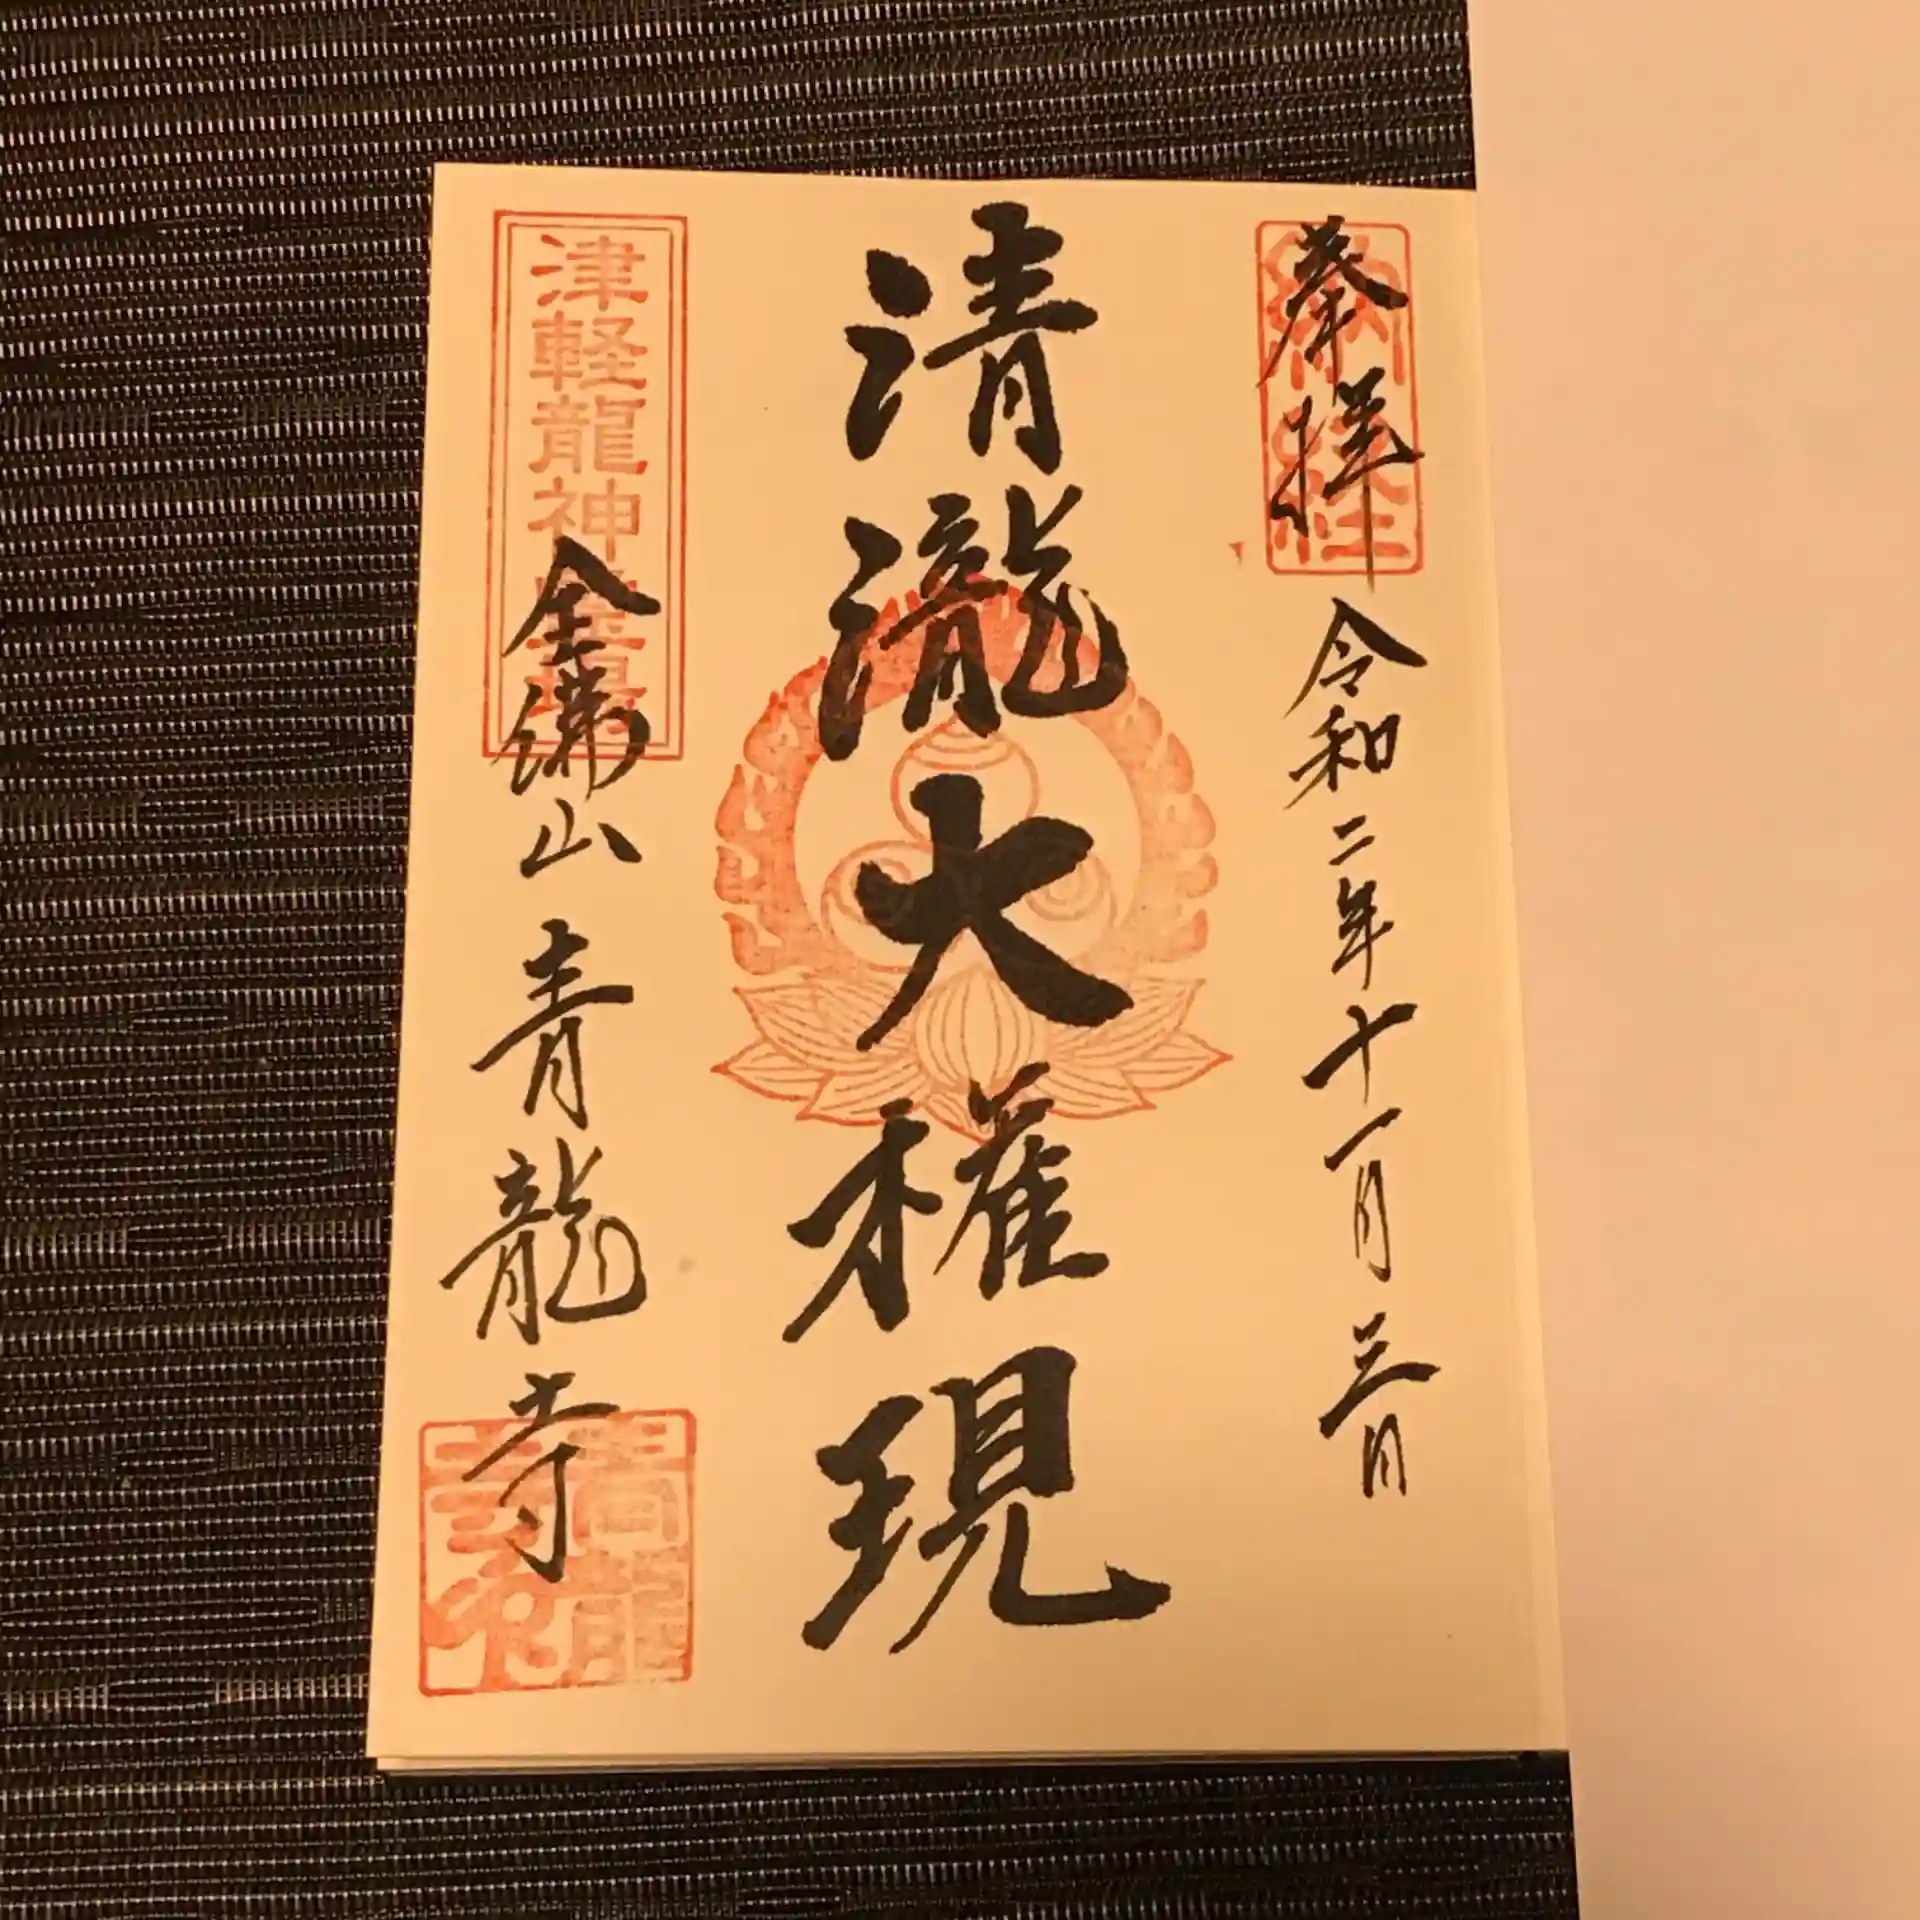 奉拝
納経
令和二年十一月三日
清瀧大権現
津軽龍神霊場
金佛山 青龍寺
青龍寺印